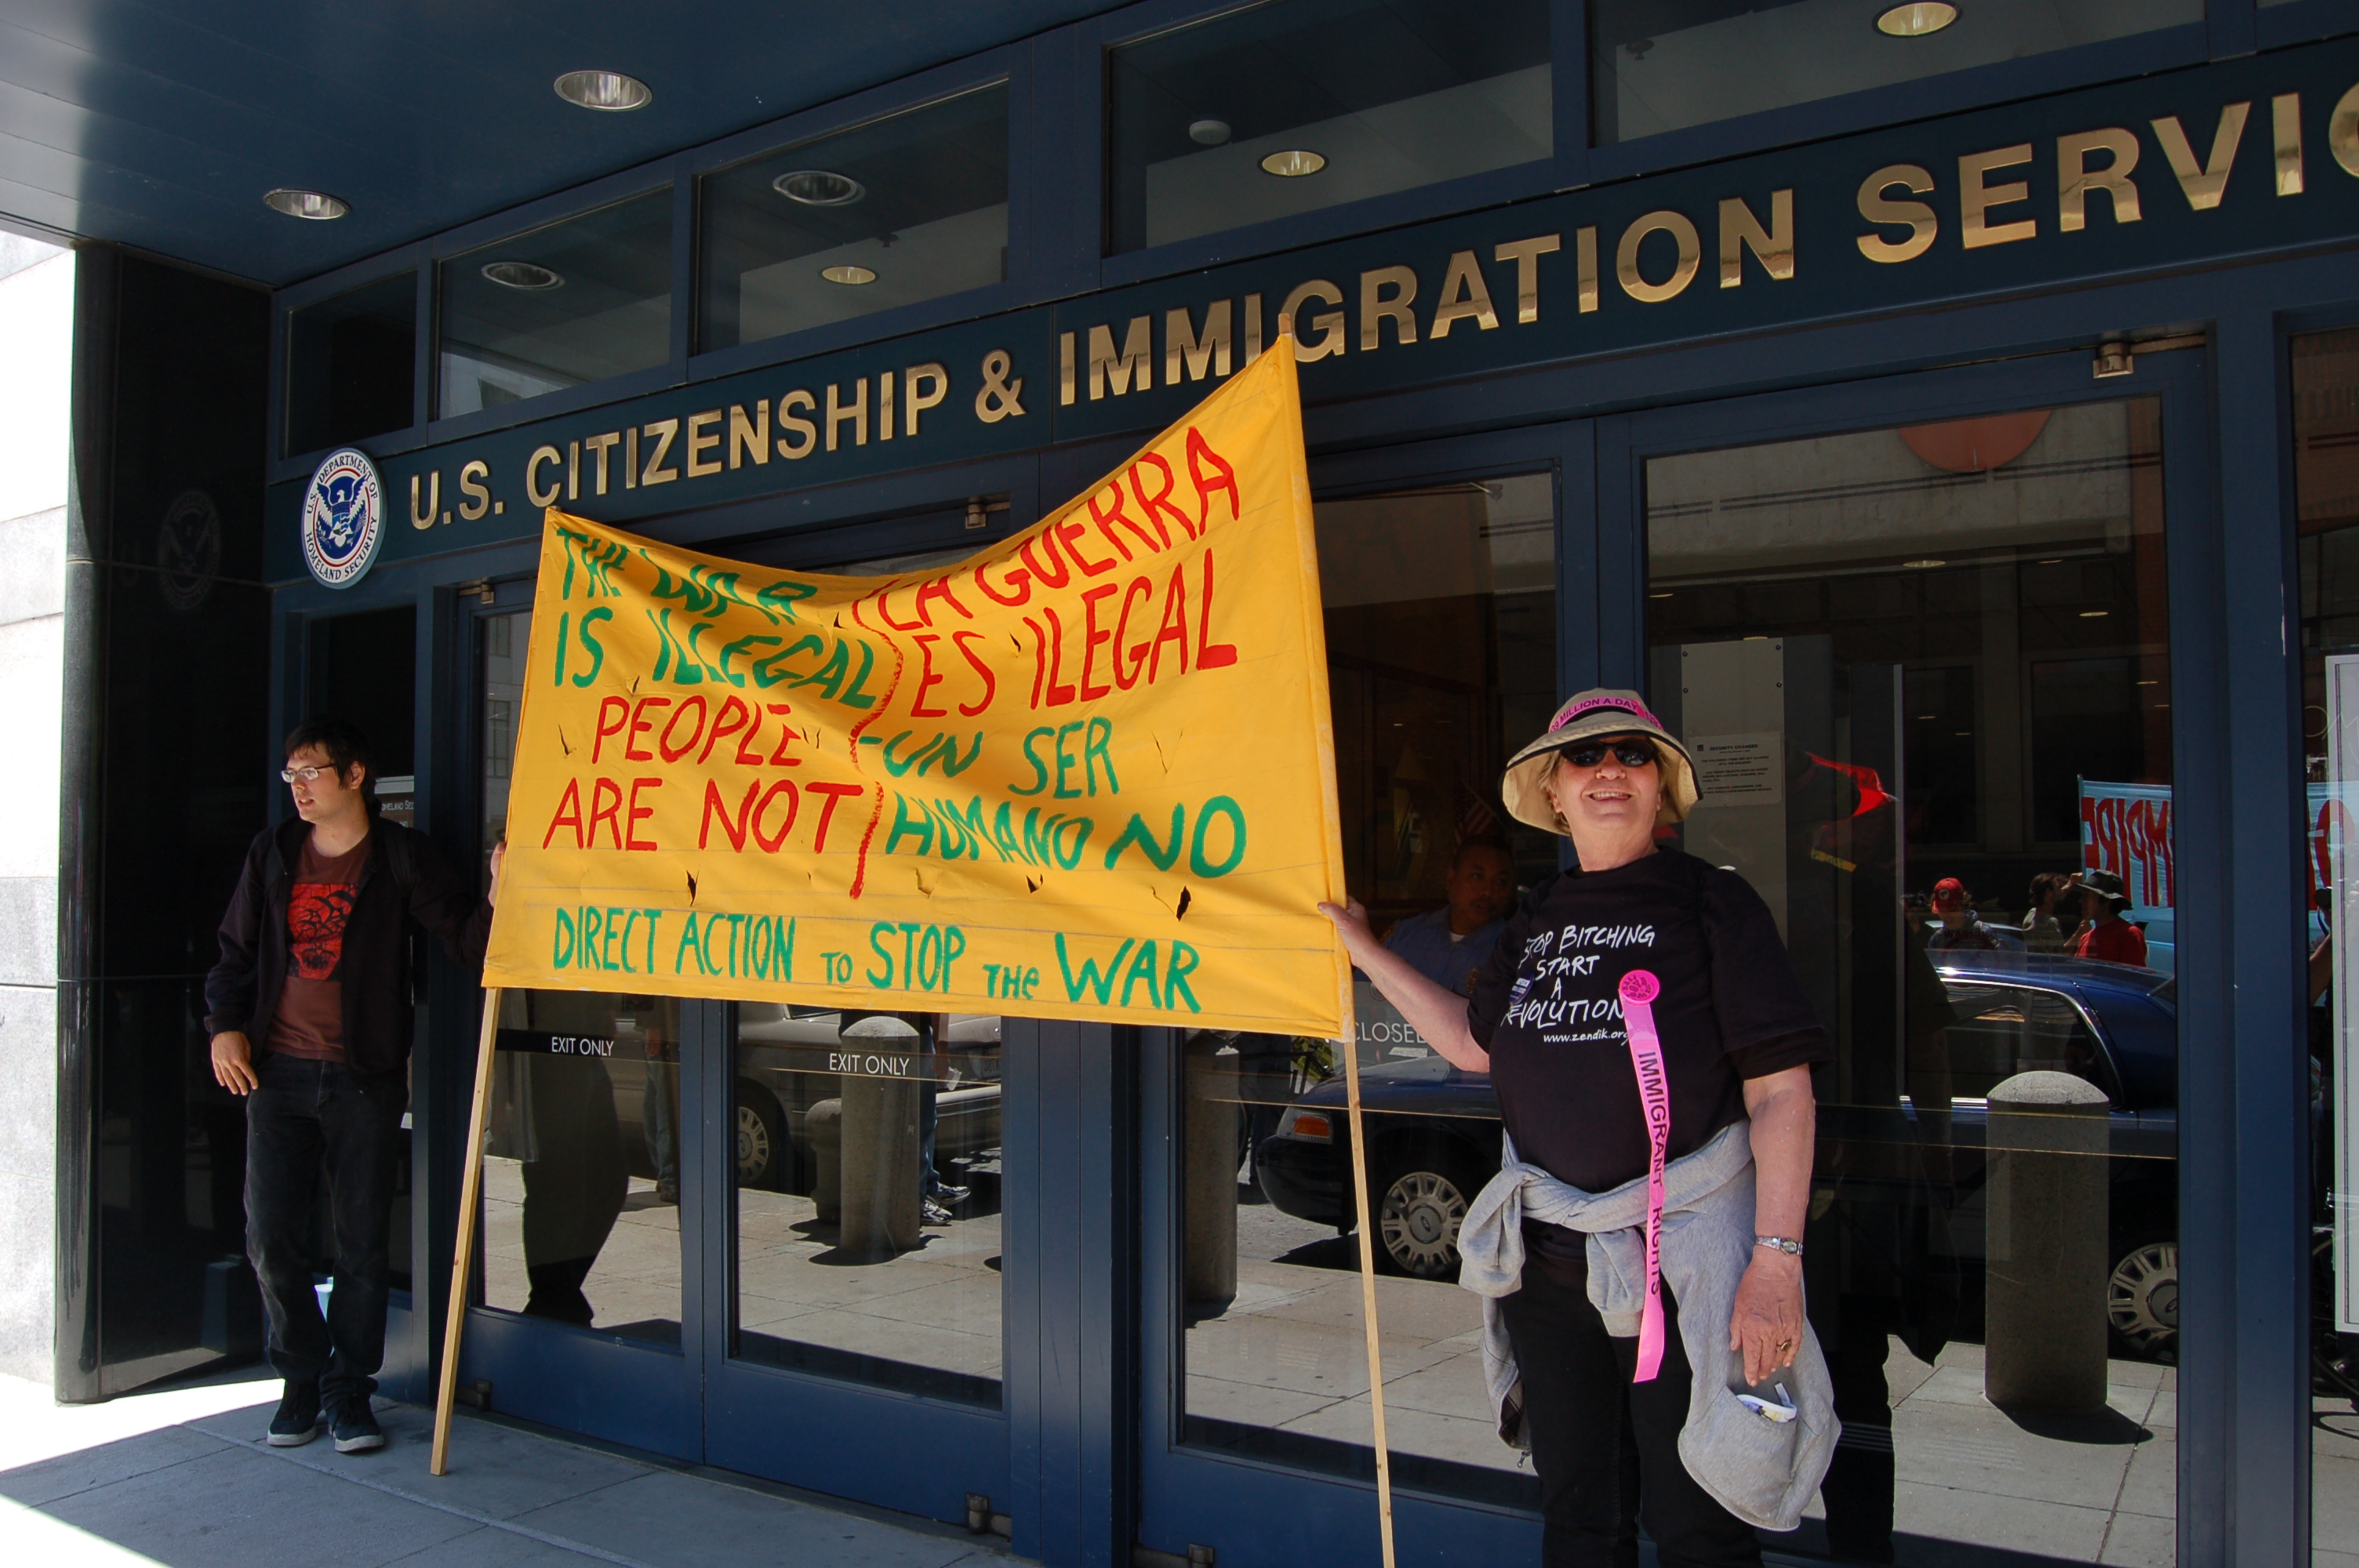 U.S. CITIZENSHIP & IMMIGRATION SERVIC
U.S. DEPARTMENT OF
HOMELAND SECURITY
THE WAR
IS ILLEGAL
PEOPLE
ARE NOT
LA GUERRA
ES ILEGAL
-UN SER
HUMANO NO
DIRECT ACTION TO STOP THE WAR
MILLION A DAY
STOP BITCHING
START
A
REVOLUTION
www.zendik.org
IMMIGRANT RIGHTS
EXIT ONLY
EXIT ONLY
CLOSED
EMPIRE